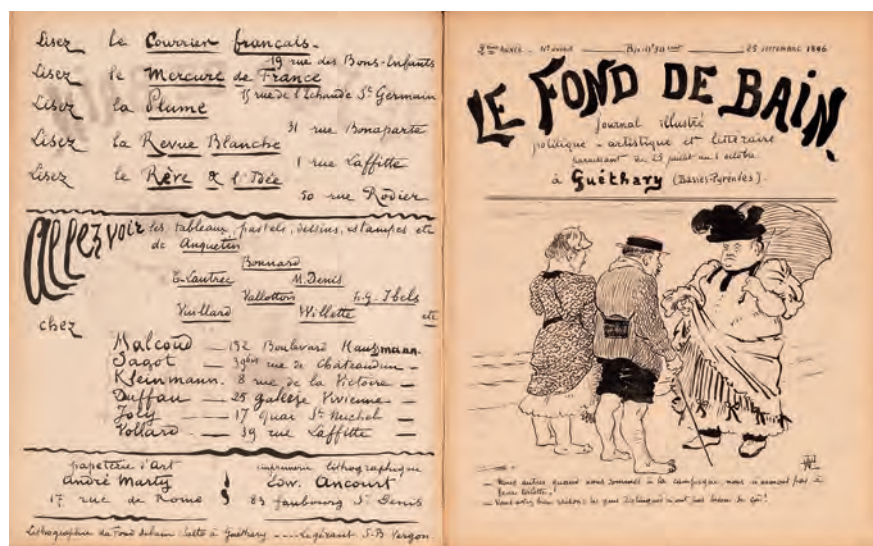 Lisez le Courrier français.
19 rue des Bons-Enfants
Lisez le Mercure de France
15 rue de l'Echaudé St Germain
Lisez la Plume
31 rue Bonaparte
Lisez la Revue Blanche
1 rue Laffitte
Lisez le Rêve & l'Idée
50 rue Rodier
Allez voir les tableaux, pastels, dessins, estampes etc
de Anquetin
Bonnard
T-Lautrec M. Denis
Vallotton H.G. Ibels
Vuillard Willette etc
chez
Malcoud — 192 Boulevard Hausmann.
Sagot — 39bis rue de Châteaudun —
Kleinmann. 8 rue de la Victoire —
Duffau — 25 galerie Vivienne —
Joly — 17 quai St Michel —
Vollard — 39 rue Laffitte —
papeterie d'Art
André Marty
17 rue de Rome
imprimerie lithographique
Edw. Ancourt
83 faubourg St Denis
Lithographie du Fond de bain à Guéthary Le gérant S-B Vergon.
2ème Année 25 septembre 1896
LE FOND DE BAIN.
Journal illustré
politique - artistique et littéraire
paraissant du 25 juillet au 1 octobre
à Guéthary (Basses-Pyrénées).
— Nous autres quand nous sommes à la campagne, nous n'aimons pas à
faire toilette!
— Vous avez bien raison: les gens distingués n'ont pas besoin de ça!